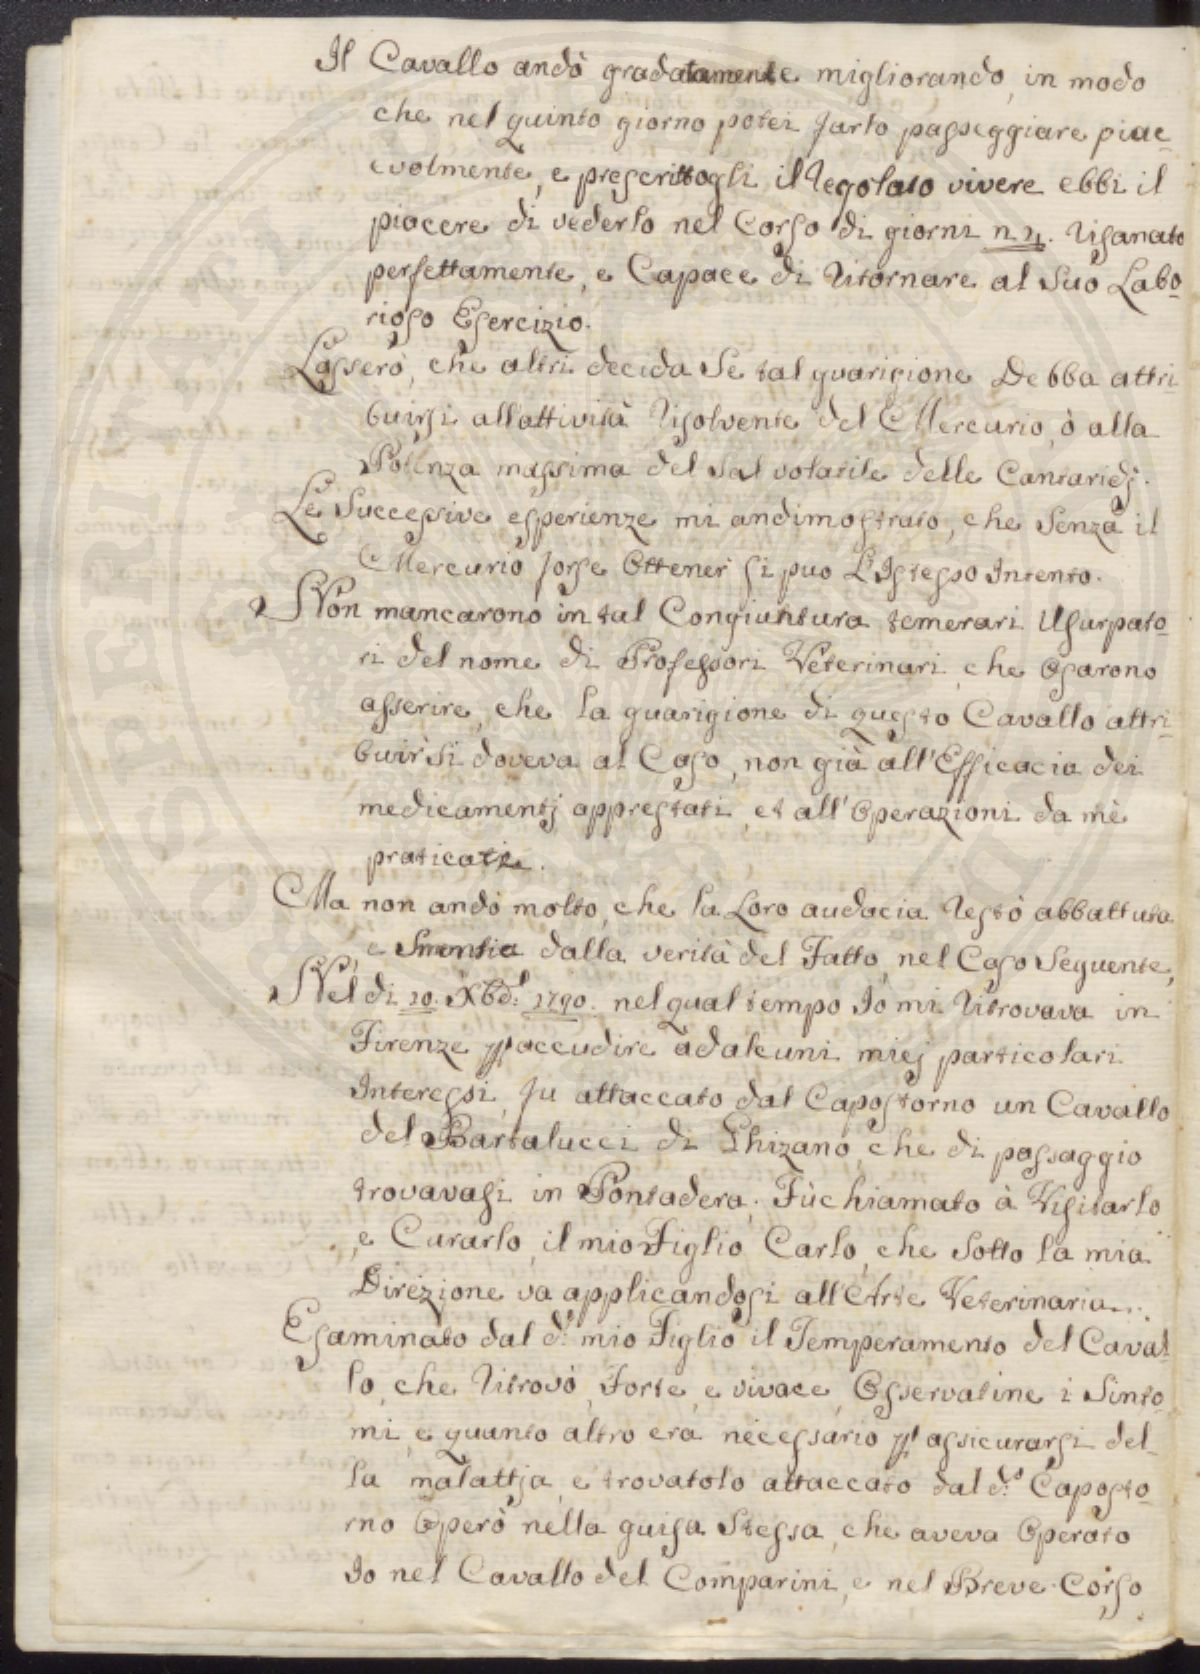 Il Cavallo andò gradatamente migliorando, in modo
che nel quinto giorno potei farlo passeggiare piac-
evolmente, e prescrittogli il Regolato vivere ebbi il
piacere di vederlo nel Corso di giorni n. 21. Risanato
perfettamente, e Capace di Ritornare al Suo Labo-
rioso Esercizio.
Lasserò, che altri decida Se tal guarigione Debba attri-
buirsi all'attività Risolvente del Mercurio, ò alla
Potenza massima del Sal volatile delle Cantaridj.
Le Successive esperienze mi andimostrato, che Senza il
Mercurio forse Ottener si puo L'Istesso Intento.
Non mancarono in tal Congiuntura temerari Usurpato-
ri del nome di Professori Veterinari, che Osarono
asserire, che la guarigione di questo Cavallo attri-
buirsi doveva al Caso, non già all'Efficacia dei
medicamentj apprestati, et all'Operazioni da mè
praticate.
Ma non andò molto, che la Loro audacia Restò abbattuta
e Smentia dalla verità del Fatto, nel Caso Seguente,
Nel di 10. Xbd: 1790. nel qual tempo Io mi Ritrovava in
Firenze p accudire adalcuni miej particolari
Interessi, fu attaccato dal Capostorno un Cavallo
del Bartalucci di Ghizano, che di passaggio
trovavasi in Pontadera. Fù chiamato à Visitarlo
e Curarlo, il mio Figlio Carlo, che Sotto la mia
Direzione va applicandosi all'Arte Veterinaria.
Esaminato dal d: mio Figlio il Temperamento del Caval-
lo, che Ritrovò, Forte, e vivace, Osservatine i Sinto-
mi, e quanto altro era necessario p assicurarsi del-
la malattja, e trovatolo attaccato dal d:o Caposto-
rno Operò nella guisa Stessa, che aveva Operato
Io nel Cavallo del Comparini, e nel Breve Corso